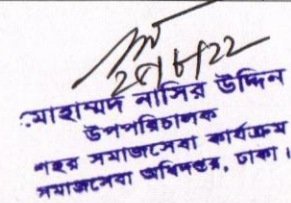 ২৭/৮/22
মোহাম্মদ নাসির উদ্দিন
উপপরিচালক
শহর সমাজসেবা কার্যক্রম
সমাজসেবা অধিদপ্তর, ঢাকা।